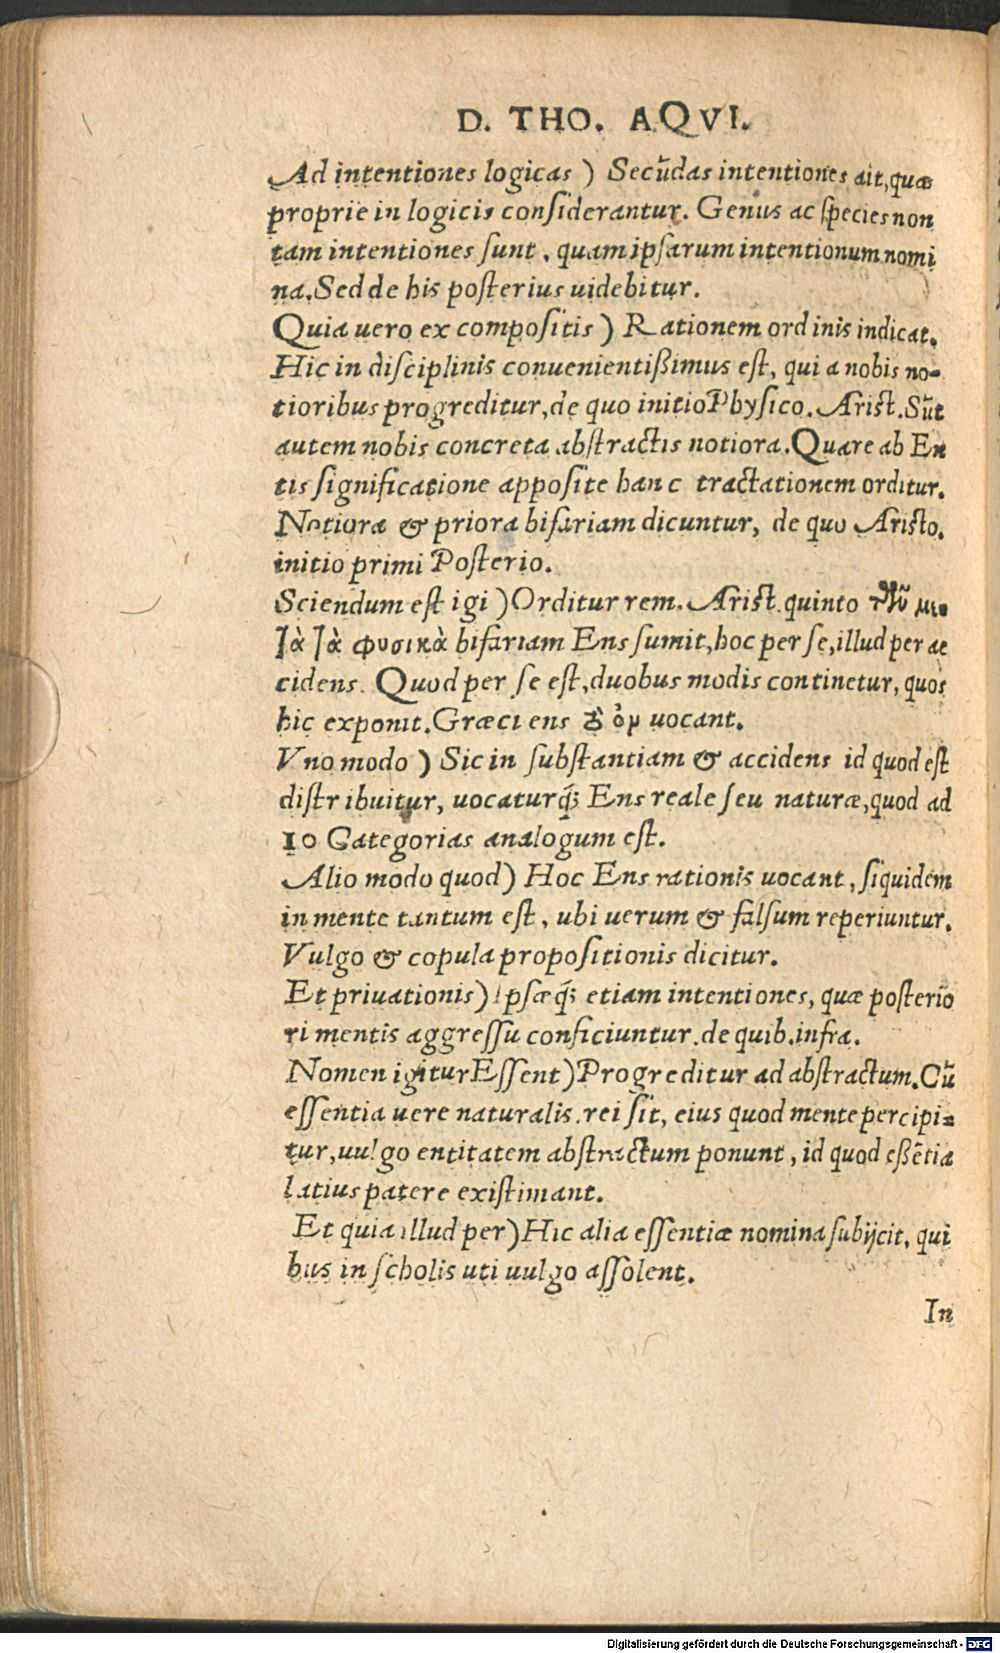 D. THO. AQVI.
Ad intentiones logicas) Secūdas intentiones ait, quæ
proprie in logicis considerantur. Genus ac species non
tam intentiones sunt, quam ipsarum intentionum nomi
na. Sed de his posterius uidebitur.
Quia uero ex compositis) Rationem ordinis indicat.
Hic in disciplinis conuenientißimus est, qui a nobis no-
tioribus progreditur, de quo initio Physico. Arist. Sūt
autem nobis concreta abstractis notiora. Quare ab En
tis significatione apposite hanc tractationem orditur.
Notiora & priora bifariam dicuntur, de quo Aristo.
initio primi Posterio.
Sciendum est igi) Orditur rem. Arist. quinto τῶν με-
τὰ τὰ φυσικὰ bifariam Ens sumit, hoc per se, illud per ac
cidens. Quod per se est, duobus modis continetur, quos
hic exponit. Græci ens ὂν uocant.
Vno modo) Sic in substantiam & accidens id quod est
distribuitur, uocaturq́; Ens reale seu naturæ, quod ad
10 Categorias analogum est.
Alio modo quod) Hoc Ens rationis uocant, siquidem
in mente tantum est, ubi uerum & falsum reperiuntur.
Vulgo & copula propositionis dicitur.
Et priuationis) Ipsæq́; etiam intentiones, quæ posterio
ri mentis aggressu conficiuntur. de quib. infra.
Nomen igitur Essent) Progreditur ad abstractum. Cū
essentia uere naturalis rei sit, eius quod mente percipi-
tur, uulgo entitatem abstractum ponunt, id quod eßētia
latius patere existimant.
Et quia illud per) Hic alia essentiæ nomina subijcit, qui
bus in scholis uti uulgo assolent.
In
Digitalisierung gefördert durch die Deutsche Forschungsgemeinschaft - DFG